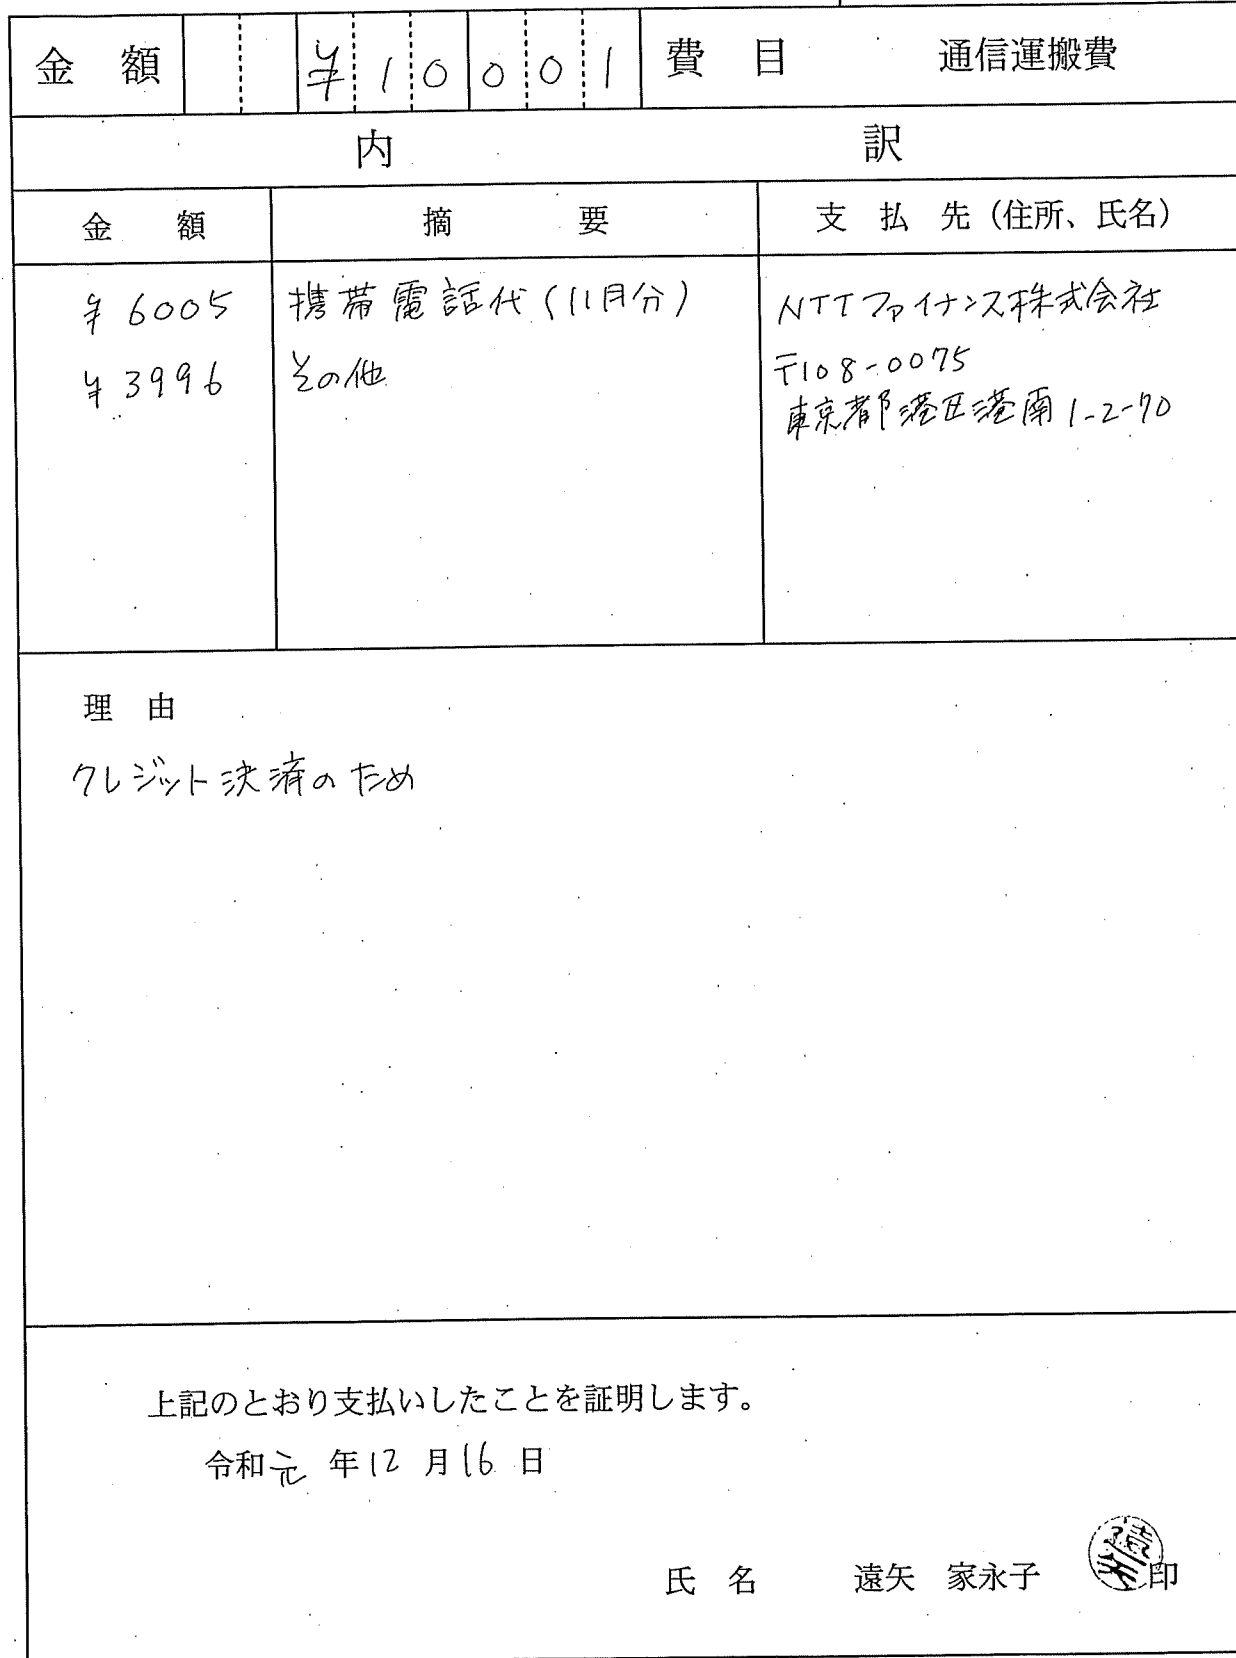 金 額 ¥10001 費 目 通信運搬費
内 訳
金 額 摘 要 支 払 先（住所、氏名）
¥6005 携帯電話代（11月分） NTTファイナンス株式会社
¥3996 その他 〒108-0075
東京都港区港南1-2-70
理 由
クレジット決済のため
上記のとおり支払いしたことを証明します。
令和元年12月16日
氏 名 遠矢 家永子 印
遠矢